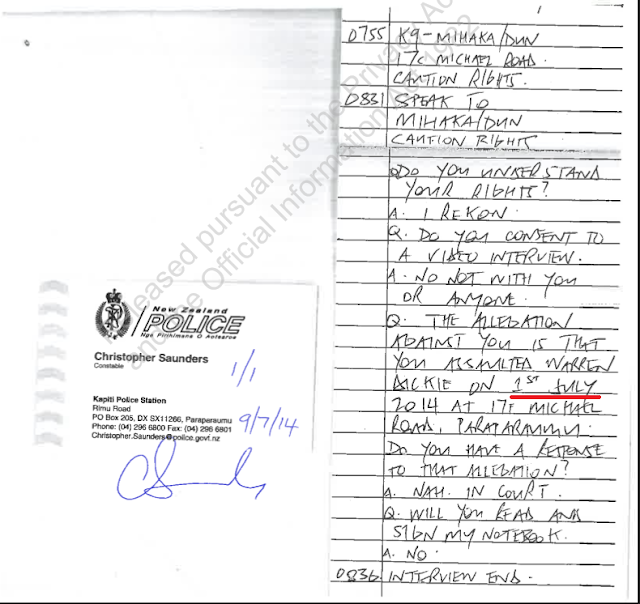 Released pursuant to the Privacy Act
the Official Information Act 1982
New Zealand
POLICE
Ngā Pirihimana O Aotearoa
Christopher Saunders
Constable
1/1
Kapiti Police Station
Rimu Road
PO Box 205, DX SX11266, Paraparaumu
Phone: (04) 296 6800 Fax: (04) 296 6801
Christopher.Saunders@police.govt.nz
9/7/14
0755 K9 - MIHAKA/DUN
17C MICHAEL ROAD.
CAUTION RIGHTS.
0831 SPEAK TO
MIHAKA/DUN
CAUTION RIGHTS
Q. DO YOU UNDERSTAND
YOUR RIGHTS?
A. I REKON.
Q. DO YOU CONSENT TO
A VIDEO INTERVIEW.
A. NO NOT WITH YOU
OR ANYONE.
Q. THE ALLEGATION
AGAINST YOU IS THAT
YOU ASSAULTED WARREN
DICKIE ON 1ST JULY
2014 AT 17F MICHAEL
ROAD, PARAPARAUMU.
DO YOU HAVE A RESPONSE
TO THAT ALLEGATION?
A. NAH. IN COURT.
Q. WILL YOU READ AND
SIGN MY NOTEBOOK.
A. NO.
0836 INTERVIEW ENDS.